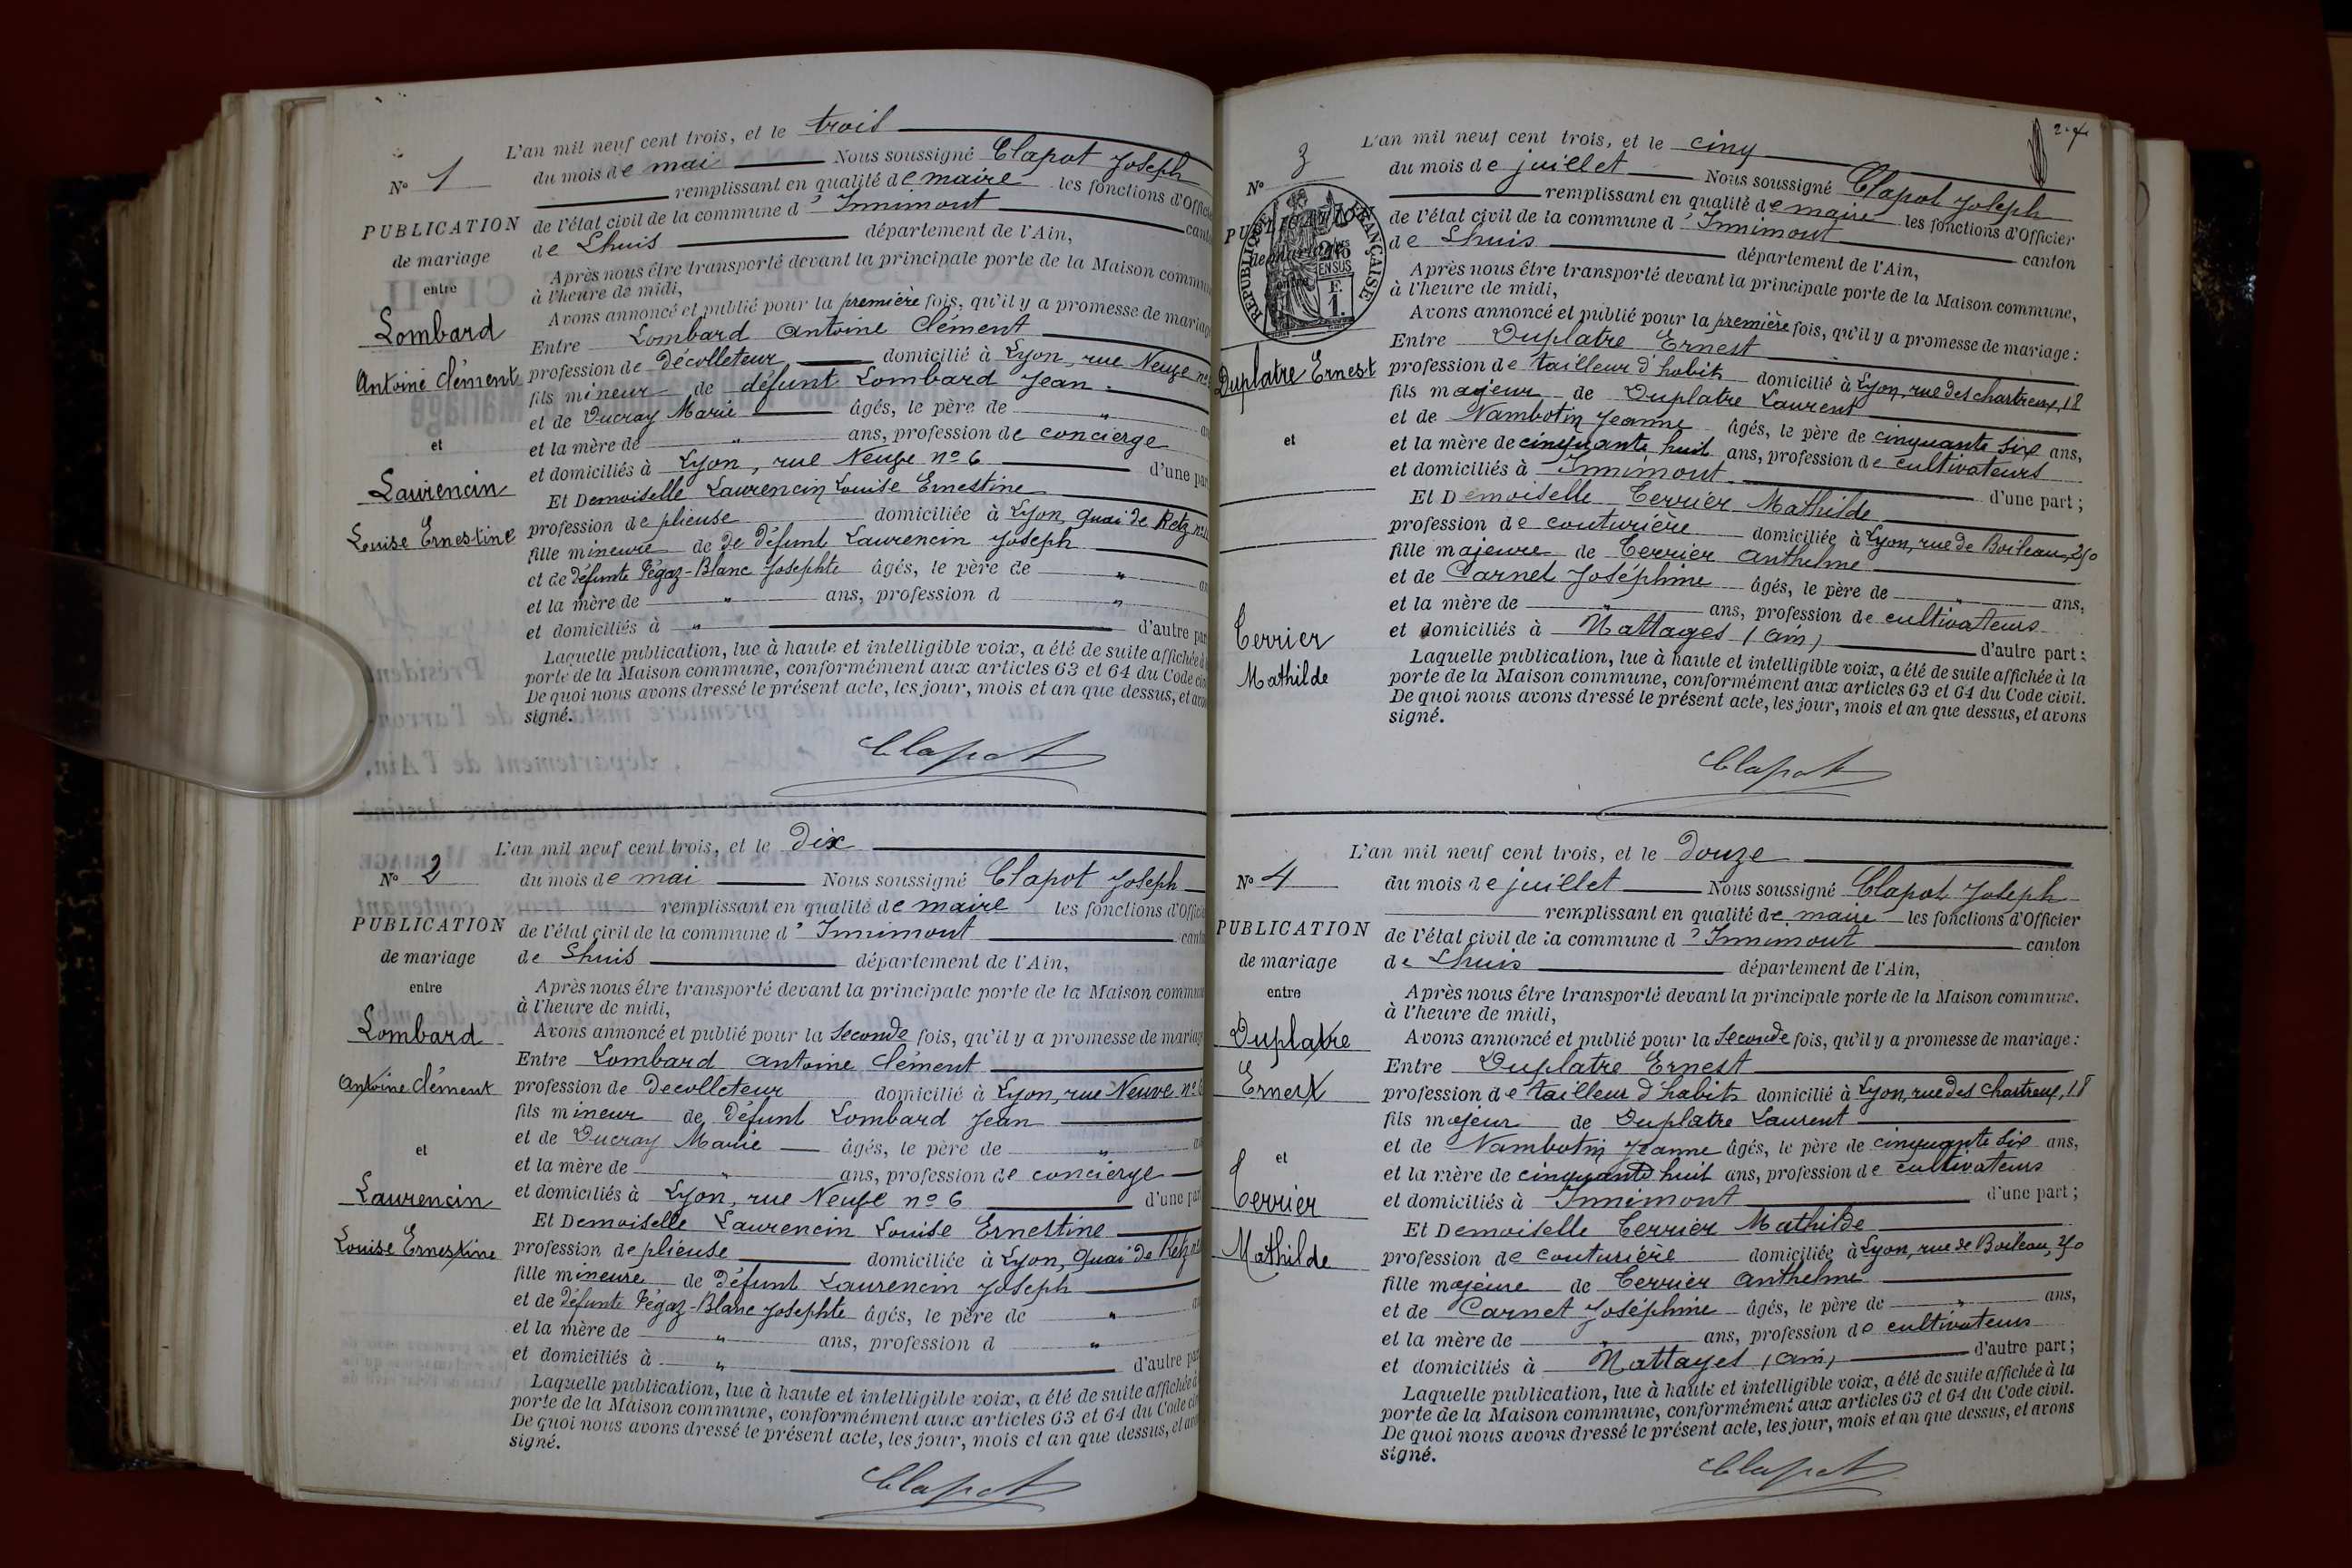 L'an mil neuf cent trois, et le trois
N° 1 du mois de mai Nous soussigné Clapot Joseph
remplissant en qualité de maire les fonctions d'Offici
PUBLICATION de l'état civil de la commune d' Innimont cant
de mariage de Lhuis département de l'Ain,
Après nous être transporté devant la principale porte de la Maison commun
entre à l'heure de midi,
Avons annoncé et publié pour la première fois, qu'il y a promesse de mariag
Lombard Entre Lombard Antoine Clément
Antoine Clément profession de Décolleteur domicilié à Lyon, rue Neuve n°
fils mineur de défunt Lombard Jean
et de Ducray Marie âgés, le père de " an
et et la mère de " ans, profession de concierge
et domiciliés à Lyon, rue Neuve n° 6 d'une par
Laurencin Et Demoiselle Laurencin Louise Ernestine
Louise Ernestine profession de plieuse domiciliée à Lyon, Quai de Retz n°
fille mineure de de défunt Laurencin Joseph
et de défunte Pégaz-Blanc Josephte âgés, le père de " an
et la mère de " ans, profession d "
et domiciliés à " d'autre par
Laquelle publication, lue à haute et intelligible voix, a été de suite affichée à
porte de la Maison commune, conformément aux articles 63 et 64 du Code civ
De quoi nous avons dressé le présent acte, les jour, mois et an que dessus, et avon
signé.
Clapot
L'an mil neuf cent trois, et le Dix
N° 2 du mois de mai Nous soussigné Clapot Joseph
remplissant en qualité de maire les fonctions d'Offici
PUBLICATION de l'état civil de la commune d' Innimont canto
de mariage de Lhuis département de l'Ain,
entre Après nous être transporté devant la principale porte de la Maison commun
à l'heure de midi,
Lombard Avons annoncé et publié pour la Seconde fois, qu'il y a promesse de mariag
Entre Lombard Antoine Clément
Antoine Clément profession de Decolleteur domicilié à Lyon, rue Neuve n° 6
fils mineur de défunt Lombard Jean
et de Ducray Marie âgés, le père de " an
et et la mère de " ans, profession de concierge
Laurencin et domiciliés à Lyon, rue Neuve n° 6 d'une par
Et Demoiselle Laurencin Louise Ernestine
Louise Ernestine profession de plieuse domiciliée à Lyon, Quai de Retz n°
fille mineure de Défunt Laurencin Joseph
et de défunte Pégaz-Blanc Josephte âgés, le père de " an
et la mère de " ans, profession d "
et domiciliés à " d'autre par
Laquelle publication, lue à haute et intelligible voix, a été de suite affichée à
porte de la Maison commune, conformément aux articles 63 et 64 du Code civ
De quoi nous avons dressé le présent acte, les jour, mois et an que dessus, et avon
signé.
Clapot
L'an mil neuf cent trois, et le cinq
N° 3 du mois de juillet Nous soussigné Clapot Joseph
remplissant en qualité de maire les fonctions d'Officier
PUBLICATION de l'état civil de la commune d' Innimont canton
de mariage de Lhuis département de l'Ain,
RÉPUBLIQUE FRANÇAISE
EN SUS
E.
1.
Après nous être transporté devant la principale porte de la Maison commune,
à l'heure de midi,
Avons annoncé et publié pour la première fois, qu'il y a promesse de mariage :
Entre Duplatre Ernest
Duplatre Ernest profession de tailleur d'habits domicilié à Lyon, rue des chartreux, 18
fils majeur de Duplatre Laurent
et de Nambotin Jeanne âgés, le père de cinquante six ans,
et et la mère de cinquante huit ans, profession de cultivateurs
et domiciliés à Innimont d'une part ;
Et Demoiselle Terrier Mathilde
profession de couturière domiciliée à Lyon, rue de Boileau, 250
fille majeure de Terrier Anthelme
et de Carnet Joséphine âgés, le père de " ans,
et la mère de " ans, profession de cultivateurs
Terrier et domiciliés à Nattages (Ain) d'autre part ;
Laquelle publication, lue à haute et intelligible voix, a été de suite affichée à la
Mathilde porte de la Maison commune, conformément aux articles 63 et 64 du Code civil.
De quoi nous avons dressé le présent acte, les jour, mois et an que dessus, et avons
signé.
Clapot
L'an mil neuf cent trois, et le douze
N° 4 du mois de juillet Nous soussigné Clapot Joseph
remplissant en qualité de maire les fonctions d'Officier
PUBLICATION de l'état civil de la commune d' Innimont canton
de mariage de Lhuis département de l'Ain,
entre Après nous être transporté devant la principale porte de la Maison commune.
à l'heure de midi,
Duplatre Avons annoncé et publié pour la Seconde fois, qu'il y a promesse de mariage :
Entre Duplatre Ernest
Ernest profession de tailleur d'habits domicilié à Lyon, rue des chartreux, 18
fils majeur de Duplatre Laurent
et de Nambotin Jeanne âgés, le père de cinquante six ans,
et et la mère de cinquante huit ans, profession de cultivateurs
Terrier et domiciliés à Innimont d'une part ;
Et Demoiselle Terrier Mathilde
Mathilde profession de couturière domiciliée à Lyon, rue de Boileau, 250
fille majeure de Terrier Anthelme
et de Carnet Joséphine âgés, le père de " ans,
et la mère de " ans, profession de cultivateurs
et domiciliés à Nattages (Ain) d'autre part ;
Laquelle publication, lue à haute et intelligible voix, a été de suite affichée à la
porte de la Maison commune, conformément aux articles 63 et 64 du Code civil.
De quoi nous avons dressé le présent acte, les jour, mois et an que dessus, et avons
signé.
Clapot